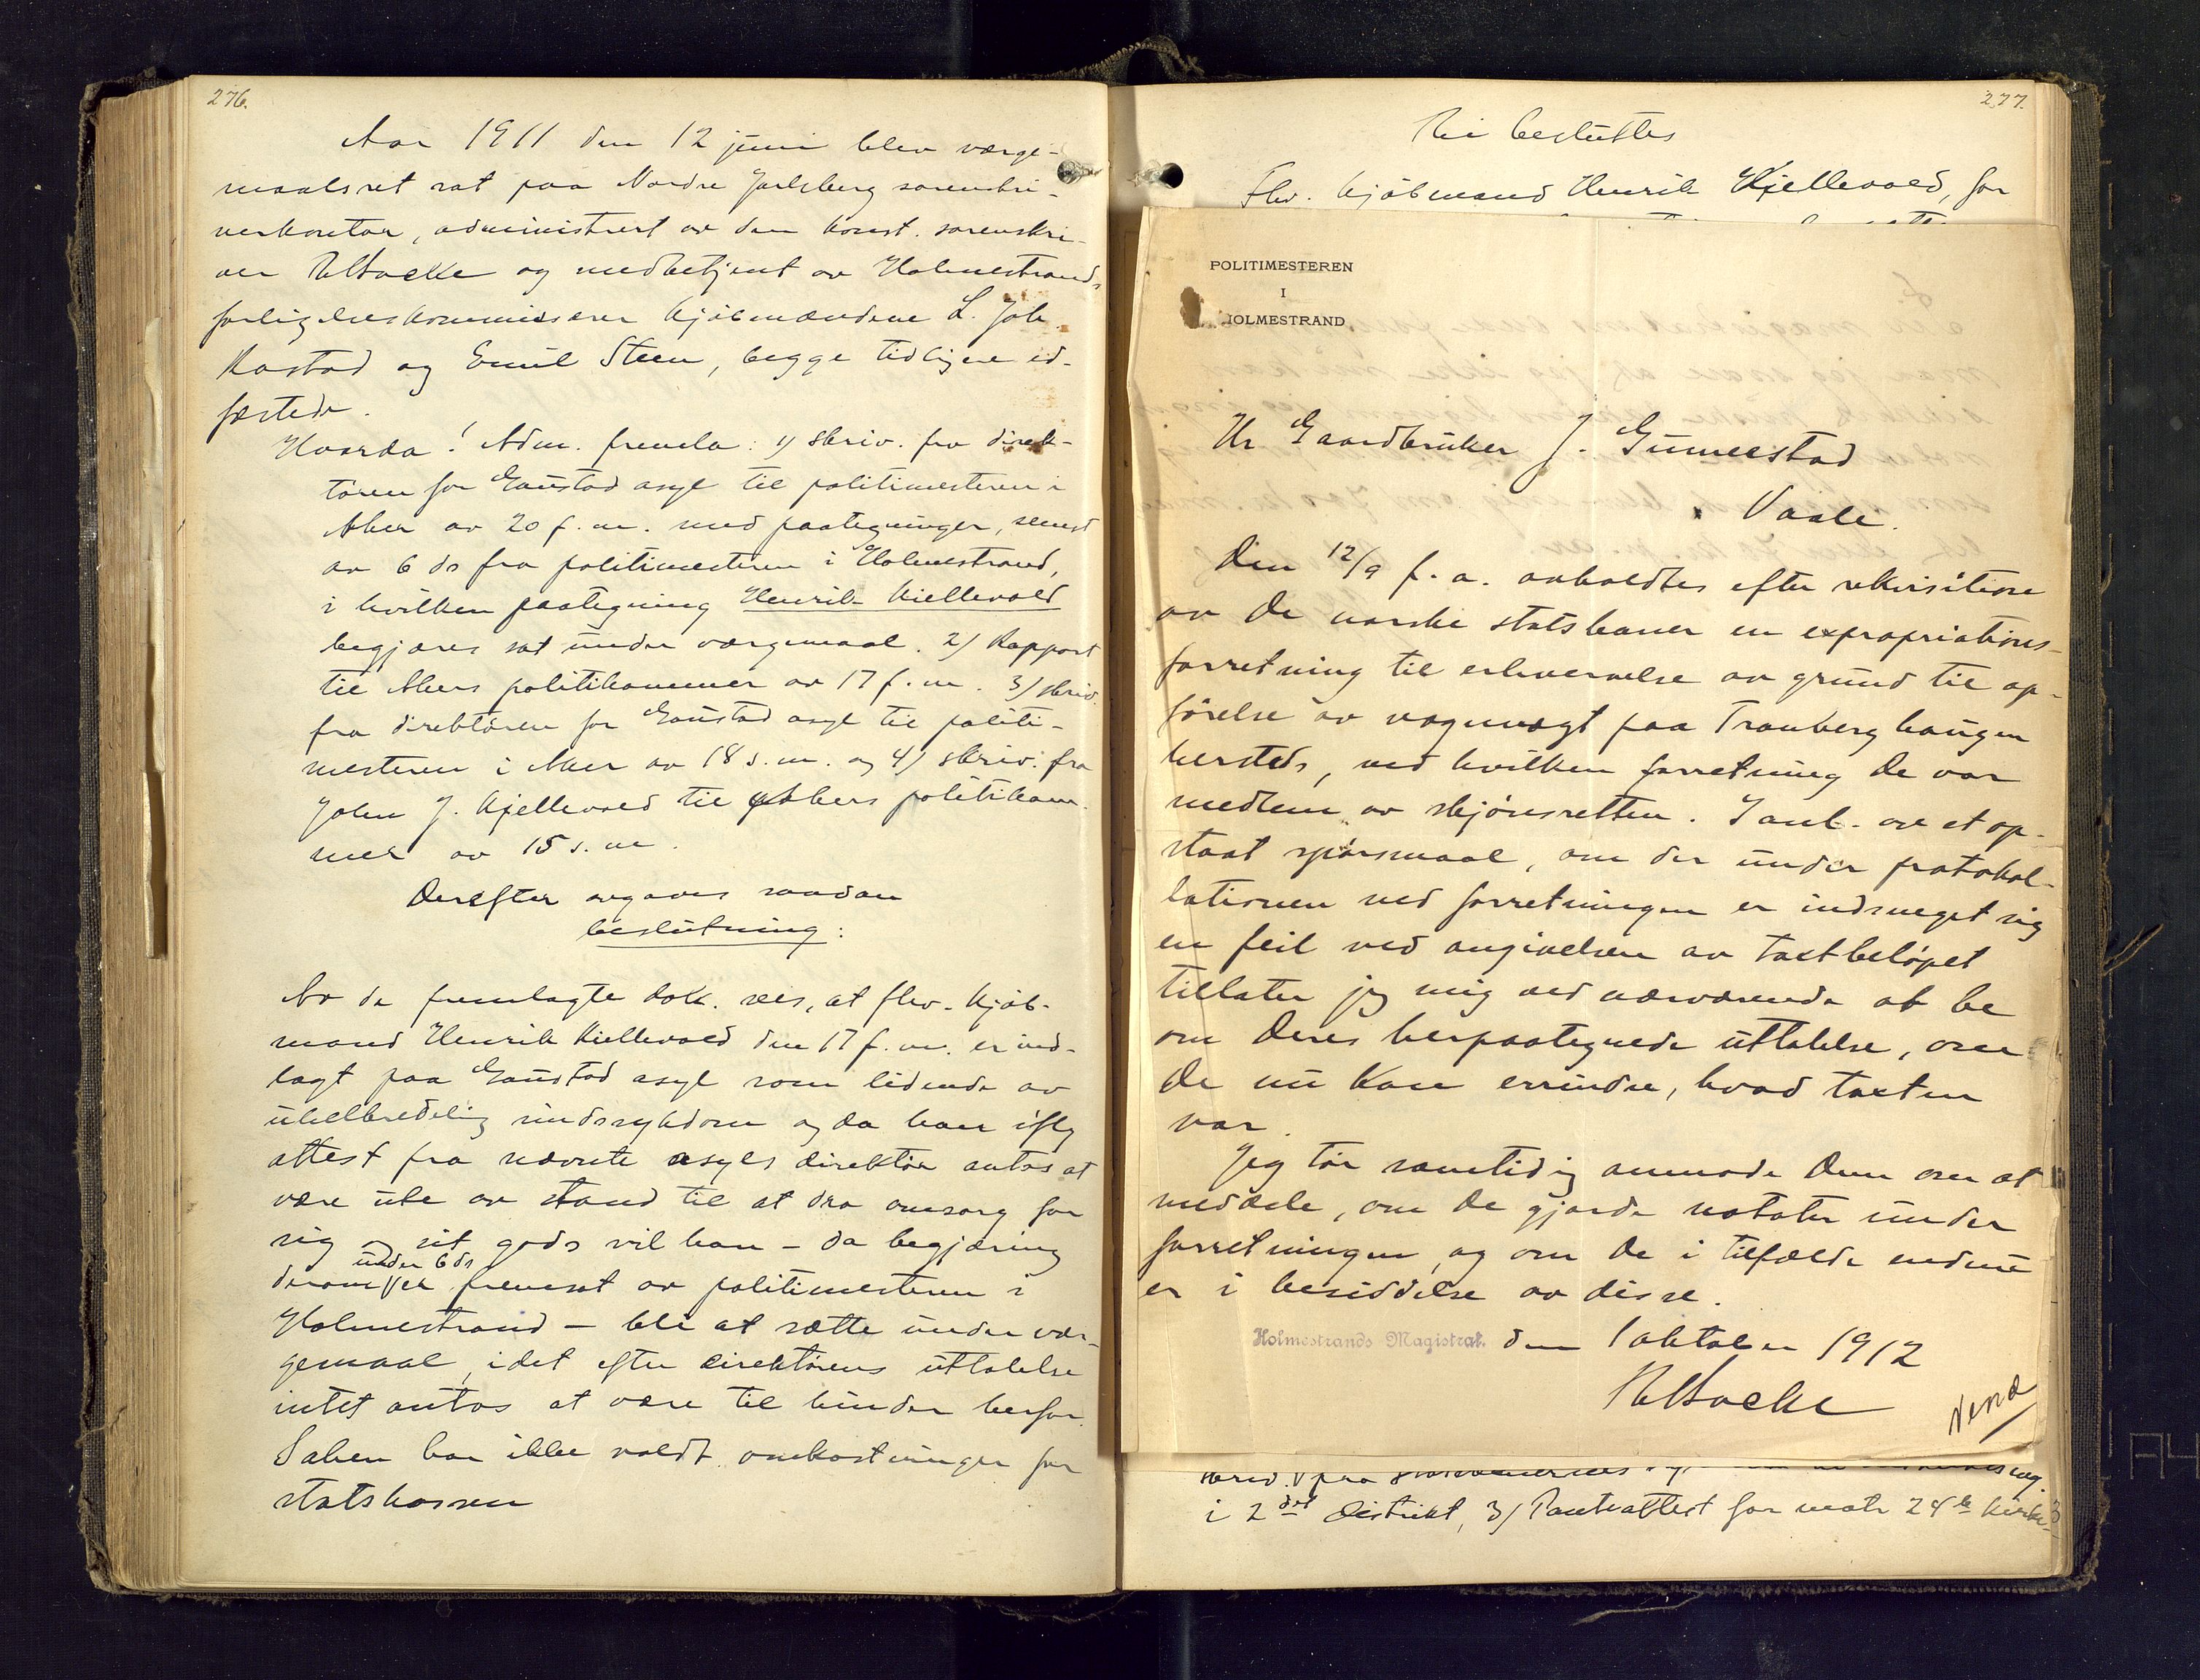 276.
Aar 1911 den 12 juni blev værge-
maalsret sat paa Nordre Jarlsberg sorenskri-
verkontor, administrert av den konst. sorenskri-
ver og medbetjent av Holmestrands
forligelseskommissærer kjøbmændene L. Joh.
Rostad og Emil Steen, begge tidligere ed-
fæstede.
Hvorda! Adm. fremla: 1) skriv. fra direk-
tøren for Gaustad asyl til politimesteren i
Aker av 20 f. m. med paategninger, senest
av 6 ds fra politimesteren i Holmestrand,
i hvilken paategning Henrik Kiellevold
begjæres sat under værgemaal. 2) Rapport
til Akers politikammer av 17 f. m. 3) skriv.
fra direktøren for Gaustad asyl til politi-
mesteren i Aker av 18 s. m. og 4) skriv. fra
John J. Kjellevold til Akers politikam-
mer av 15 s. m.
Derefter avgaves saadan
beslutning:
Av de fremlagte dok. sees, at fhv. kjøb-
mand Henrik Kiellevold den 17 f. m. er ind-
lagt paa Gaustad asyl som lidende av
uhelbredelig sindssykdom og da han iflg
attest fra nævnte asyls direktør antas at
være ute av stand til at dra omsorg for
sig og sit gods vil han – da begjæring
under 6 ds
derom er fremsat av politimesteren i
Holmestrand – bli at sætte under vær-
gemaal, idet efter direktørens uttalelse
intet antas at være til hinder herfor.
Saken har ikke voldt omkostninger for
statskassen
277.
Ti besluttes
Fhv. kjøbmand Henrik Kjellevold, for
POLITIMESTEREN
I
HOLMESTRAND
Hr Gaardbruker J. Gunnestad
Vaale.
Den 12/9 f. a. avholdtes efter rekvisition
av De norske statsbaner en expropriations-
forretning til erhvervelse av grund til op-
førelse av vognvægt paa Tranberg haugen
hersteds, ved hvilken forretning De var
medlem av skjønsretten. I anl. av et op-
staat spørsmaal, om der under protokol-
lationen ved forretningen er indsneget sig
en feil ved angivelsen av taxtbeløpet
tillater jeg mig ved nærværende at be
om Deres herpaategnede uttalelse, om
De nu kan erindre, hvad taxten
var.
Jeg tør samtidig anmode Dem om at
meddele, om De gjorde notater under
forretningen, og om De i tilfælde endnu
er i besiddelse av disse.
Holmestrands Magistrat. den 1 oktober 1912
Vend
i 2det distrikt, 3) Panteattest for matr 24b Kirke-